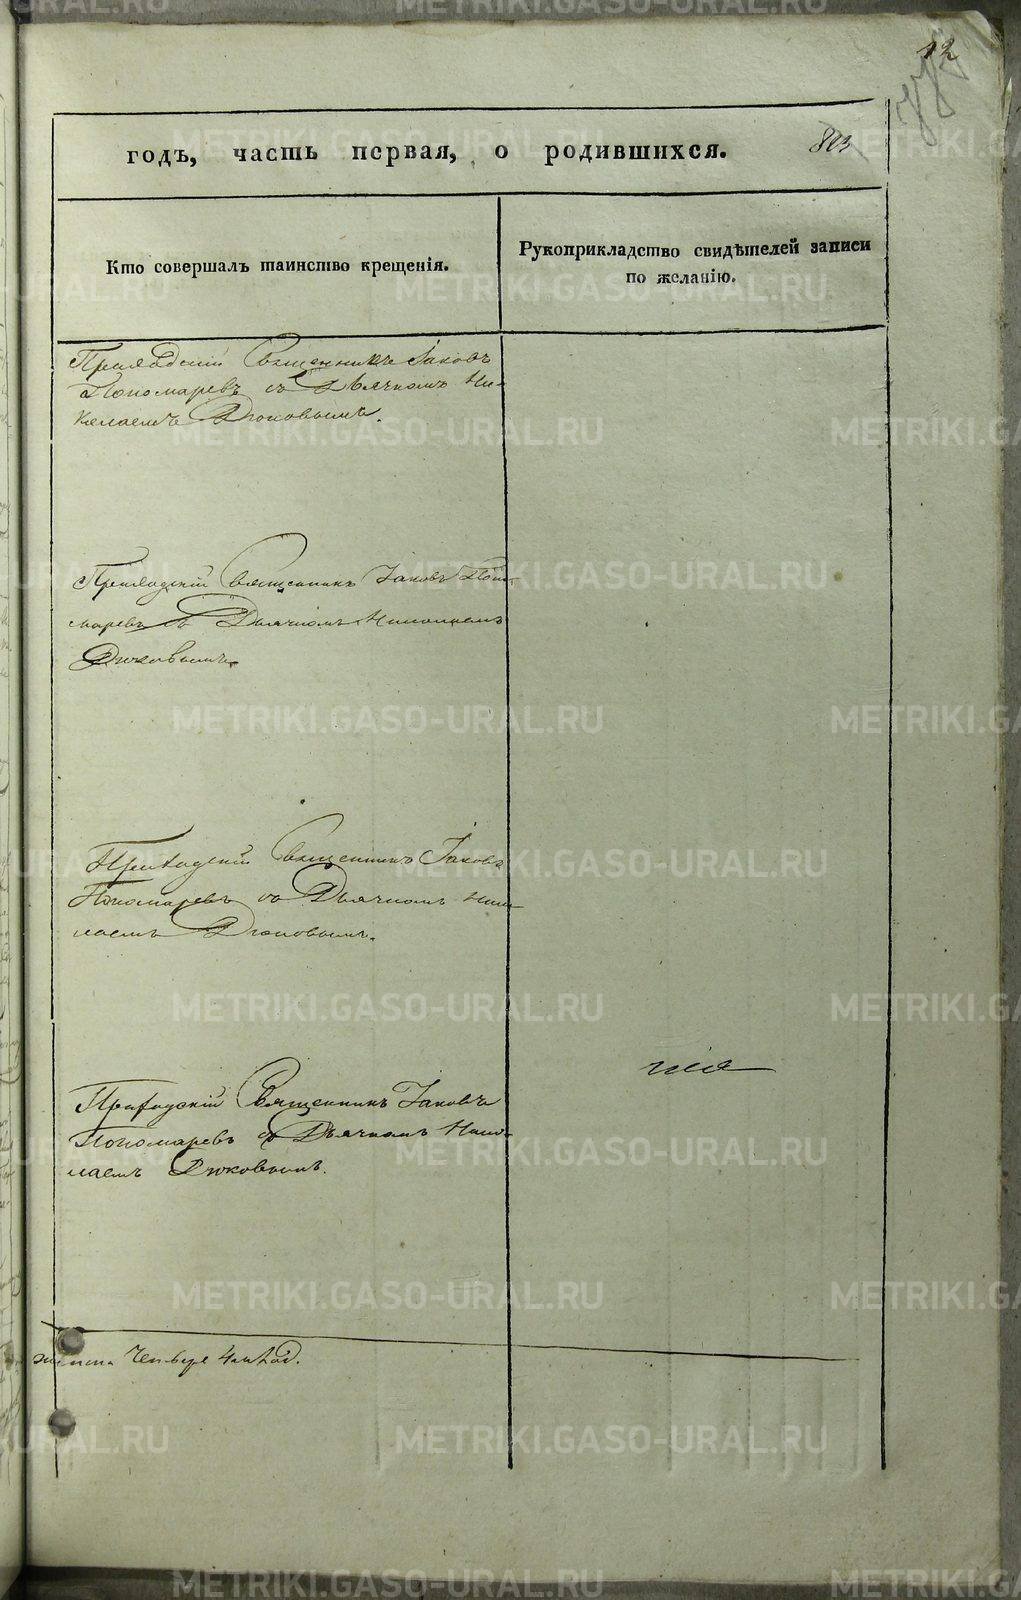 12
годъ, часть первая, о родившихся.
803
Кто совершалъ таинство крещенія.
Рукоприкладство свидѣтелей записи
по желанію.
Приходскій Священникъ Іаковъ
Пономаревъ съ Дьячкомъ Ни-
колаемъ Дюковымъ.
Приходскій Священникъ Іаковъ Поно-
маревъ съ Дьячкомъ Николаемъ
Дюковымъ.
Приходскій Священникъ Іаковъ
Пономаревъ съ Дьячкомъ Нико-
лаемъ Дюковымъ.
Приходскій Священникъ Іаковъ
Пономаревъ съ Дьячкомъ Нико-
лаемъ Дюковымъ.
METRIKI.GASO-URAL.RU